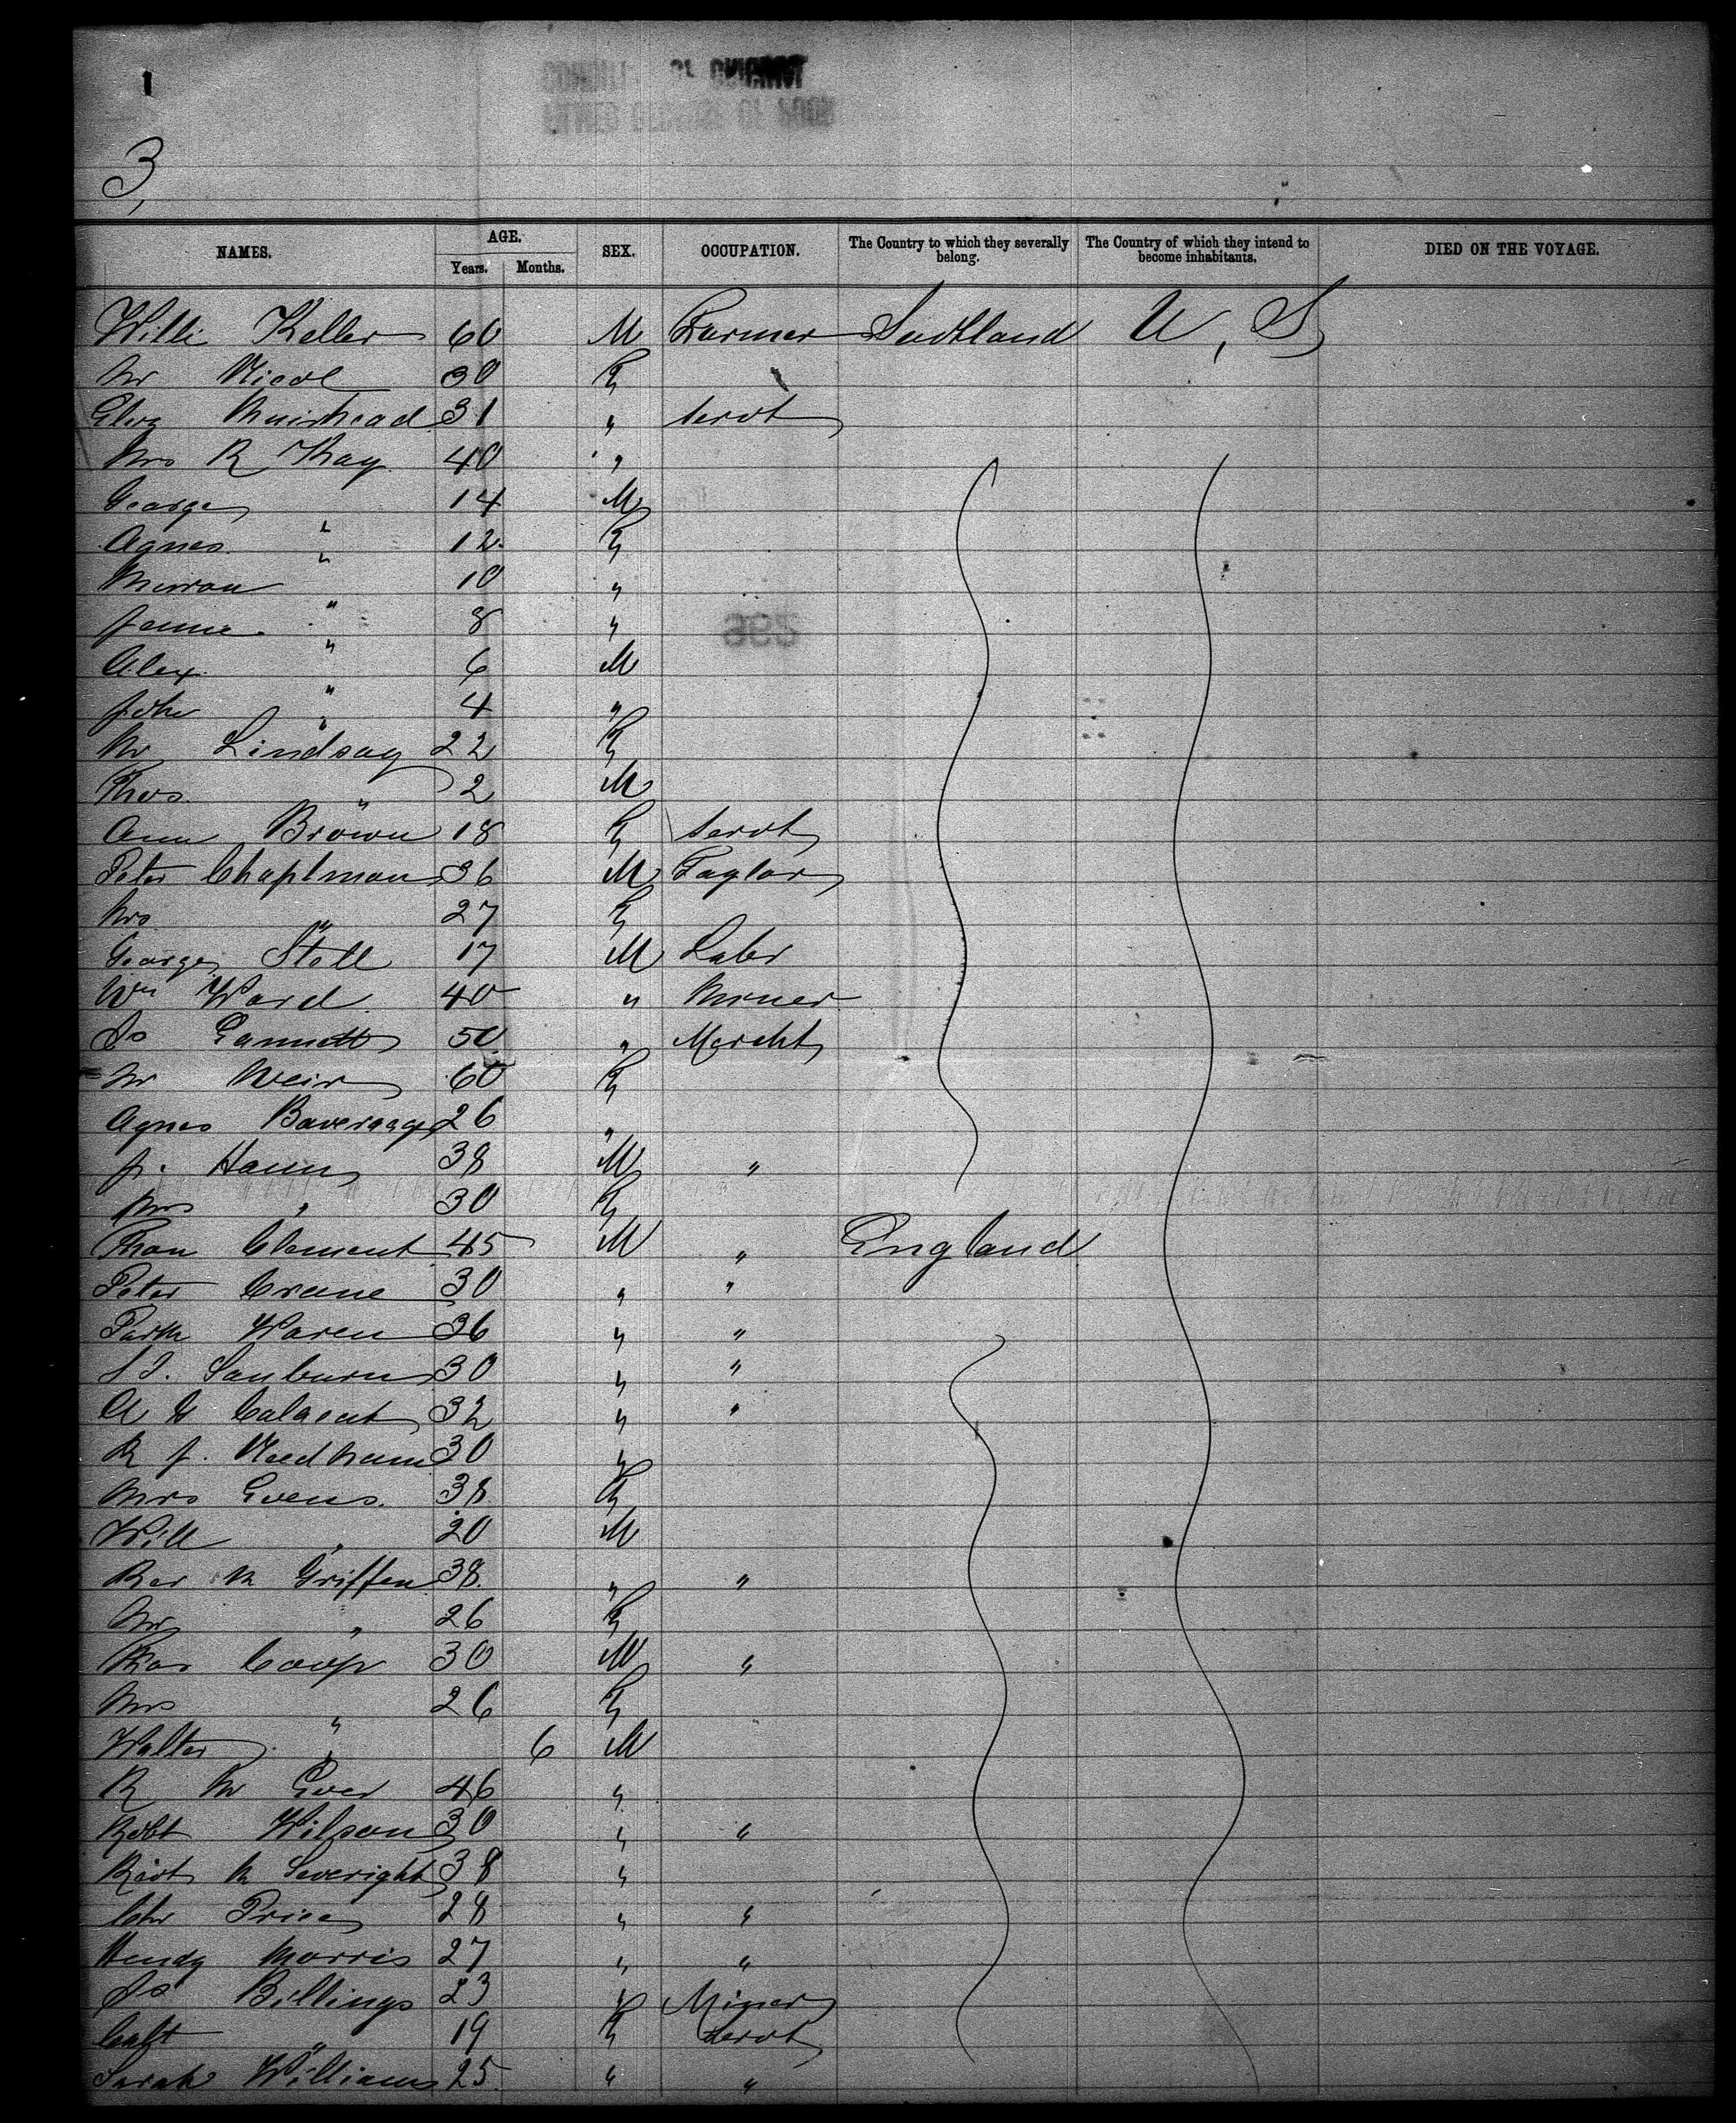 1
3,
NAMES. AGE. SEX. OCCUPATION. The Country to which they severally belong. The Country of which they intend to become inhabitants. DIED ON THE VOYAGE.
Years. Months.
Willi Keller 60 M Farmer Scotland U, S
Mr Nicol 30 F
Eliza Muirhead 31 " Servt
Mrs R Kay 40 "
George 14 M
Agnes " 12 F
" 10 "
Jennie " 8 "
Alex " 6 M
John " 4 "
Mr Lindsay 22 F
Thos " 2 M
Ann Brown 18 F Servt
Peter Chaptman 36 M Taylor
Mrs " 27 F
George Stell 17 M Labr
Wm Ward 40 " Miner
Js 50 " Mercht
Mr Weir 60 F
Agnes Baveragge 26 "
J. Hann 38 M "
Mrs " 30 F
Thom Clement 45 M " England
Peter Crane 30 " "
Waren 36 " "
Sanburn 30 " "
A G 32 " "
R J. Needham 30 "
Mrs Evens. 38 F
Will " 20 M
Rev M Griffen 38 " "
Mrs " 26 F
Coop 30 M "
Mrs " 26 F
Walter " 6 M
R M 46 "
Robt Wilson 30 " "
M Severight 38 "
Chr Price 28 " "
Hendy Morris 27 " "
Js Billings 23 " Miner
" 19 F Servt
Sarah Williams 25 " "